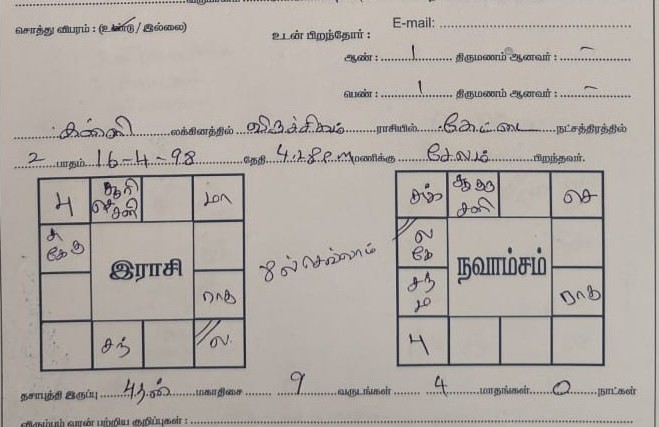 சொத்து விபரம் : (உண்டு / இல்லை)
உடன் பிறந்தோர் :
E-mail:
ஆண் : 1 திருமணம் ஆனவர் : –
பெண் : 1 திருமணம் ஆனவர் : –
கன்னி லக்கினத்தில் விருச்சிகம் ராசியில் கேட்டை நட்சத்திரத்தில்
2 பாதம் 16-4-98 தேதி 4.28 P.M மணிக்கு சேலம் பிறந்தவர்.
பு
மா
சு
கேது
இராசி
ராகு
சந்
ல
8ல் செவ்வாய்
சனி
செ
ல
கே
சந்
நவாம்சம்
ராகு
பு
தசாபுத்தி இருப்பு புதன் மகாதிசை 9 வருடங்கள் 4 மாதங்கள் 0 நாட்கள்
விரும்பும் வரன் பற்றிய குறிப்புகள் :